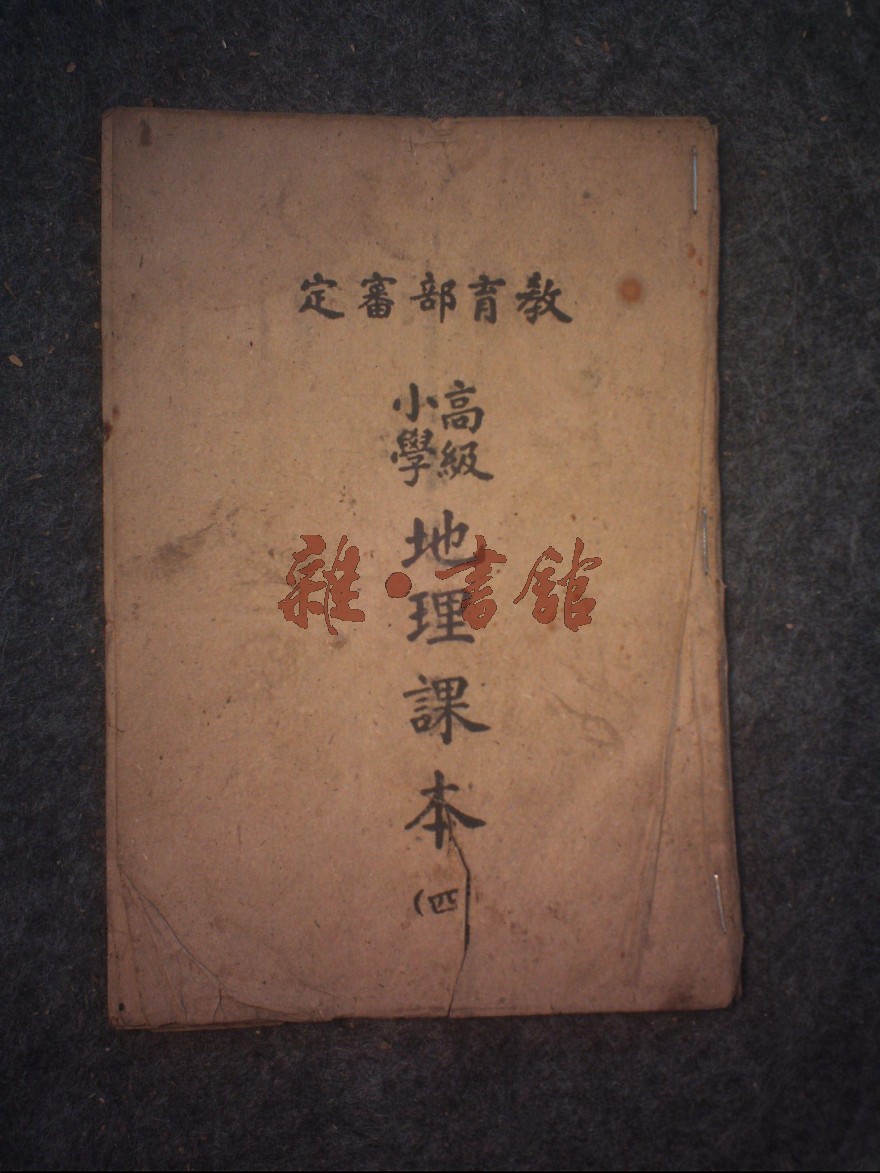 教育部審定
高級
小學
地理課本
(四
雜·書館